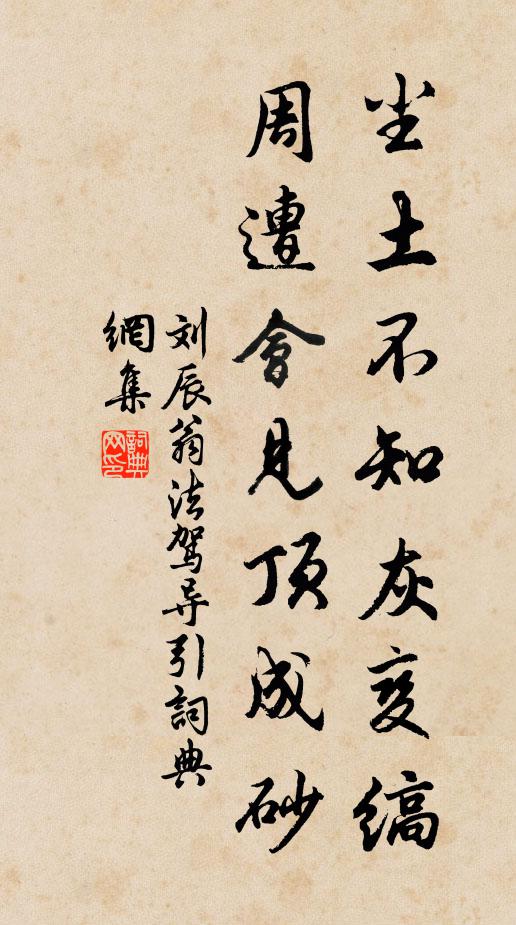 尘土不知灰变缟
周遭會見顶成砂
刘辰翁法驾导引詞典
網集
詞典网印